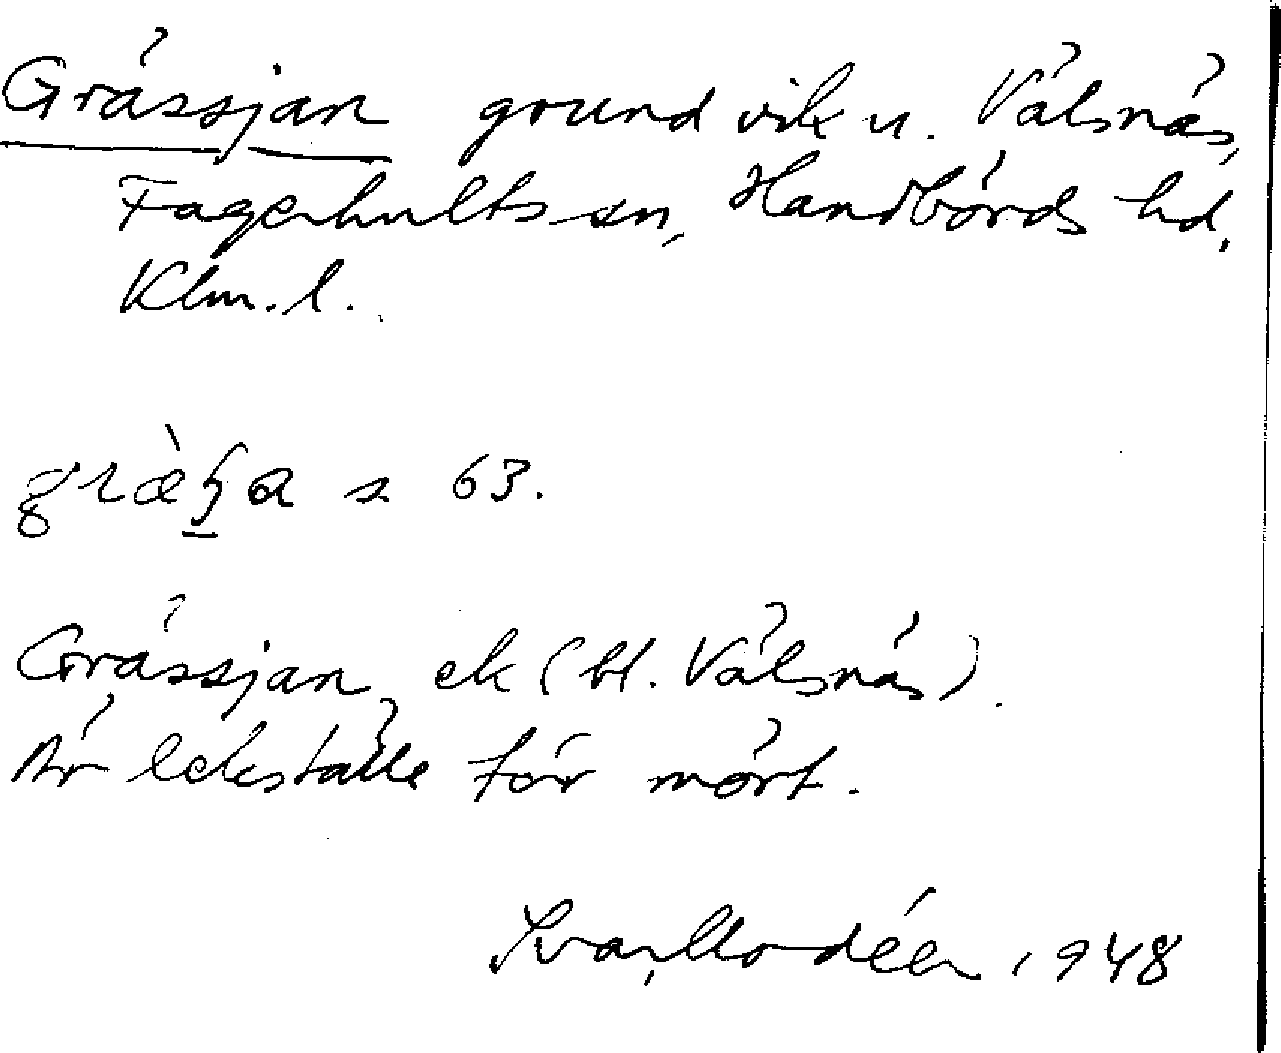 Grässjan grund vik u. Välsnäs,
Fagerhults sn, Handbörds hd,
Klm. l.
græ̀ɧa s 63.
Grässjan, ek (bl. Välsnäs).
Är lekställe för mört.
Ivar Modéer 1948